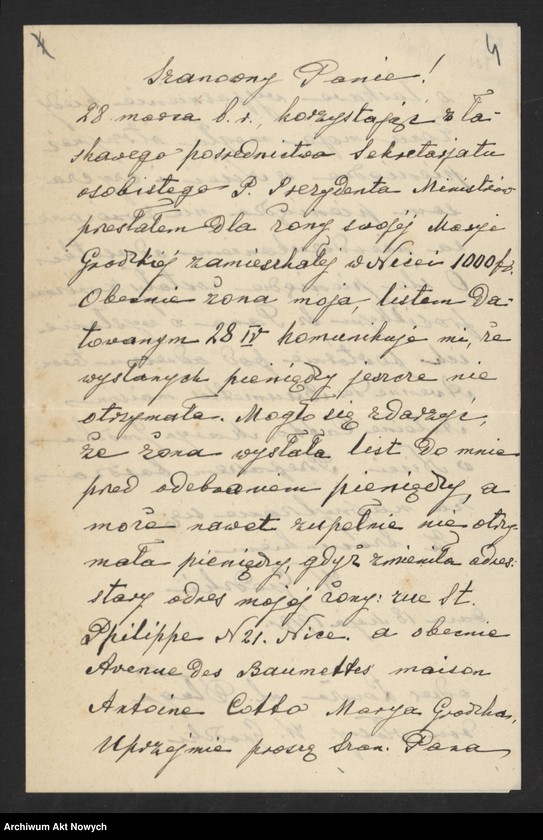 4
Szanowny Panie!
28 marca b.r., korzystając z ła-
skawego pośrednictwa Sekretarjatu
osobistego P. Prezydenta Ministrów
przesłałem dla żony swojej Marji
Grodzkiej zamieszkałej w Nicei 1000 fr.
Obecnie żona moja, listem da-
towanym 28 IV komunikuje mi, że
wysłanych pieniędzy jeszcze nie
otrzymała. Mogło się zdarzyć,
że żona wysłała list do mnie
przed odebraniem pieniędzy, a
może nawet zupełnie nie otrzy-
mała pieniędzy, gdyż zmieniła adres:
stary adres mojej żony: rue St.
Philippe N 21. Nice. a obecnie
Avenue des Baumettes maison
Antoine Cotto Marya Grodzka.
Uprzejmie proszę Szan. Pana
Archiwum Akt Nowych